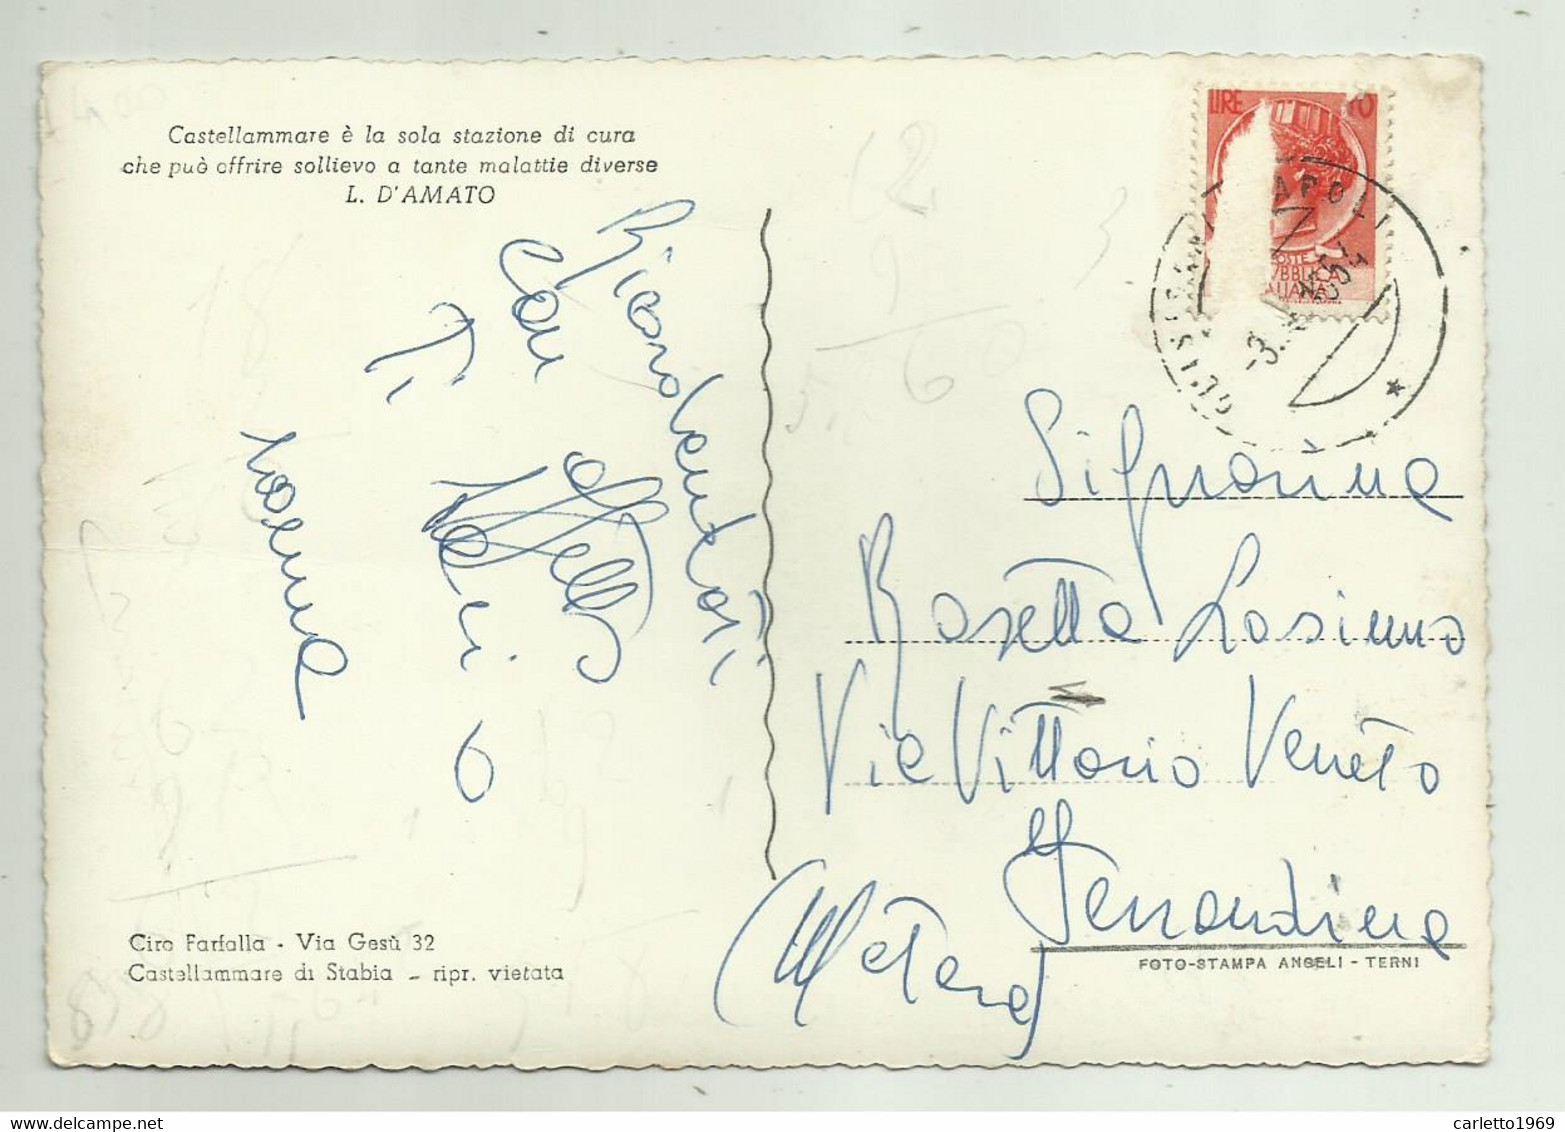 Castellammare è la sola stazione di cura
che può offrire sollievo a tante malattie diverse
L. D'AMATO
Ricordandoti
con affetto
Ti
LIRE 10
POSTE
Signorina
Rosetta Losinno
Via Vittorio Veneto
Ferrandina
(Matera)
Ciro Farfalla - Via Gesù 32
Castellammare di Stabia - ripr. vietata
FOTO-STAMPA ANGELI - TERNI
carletto1969